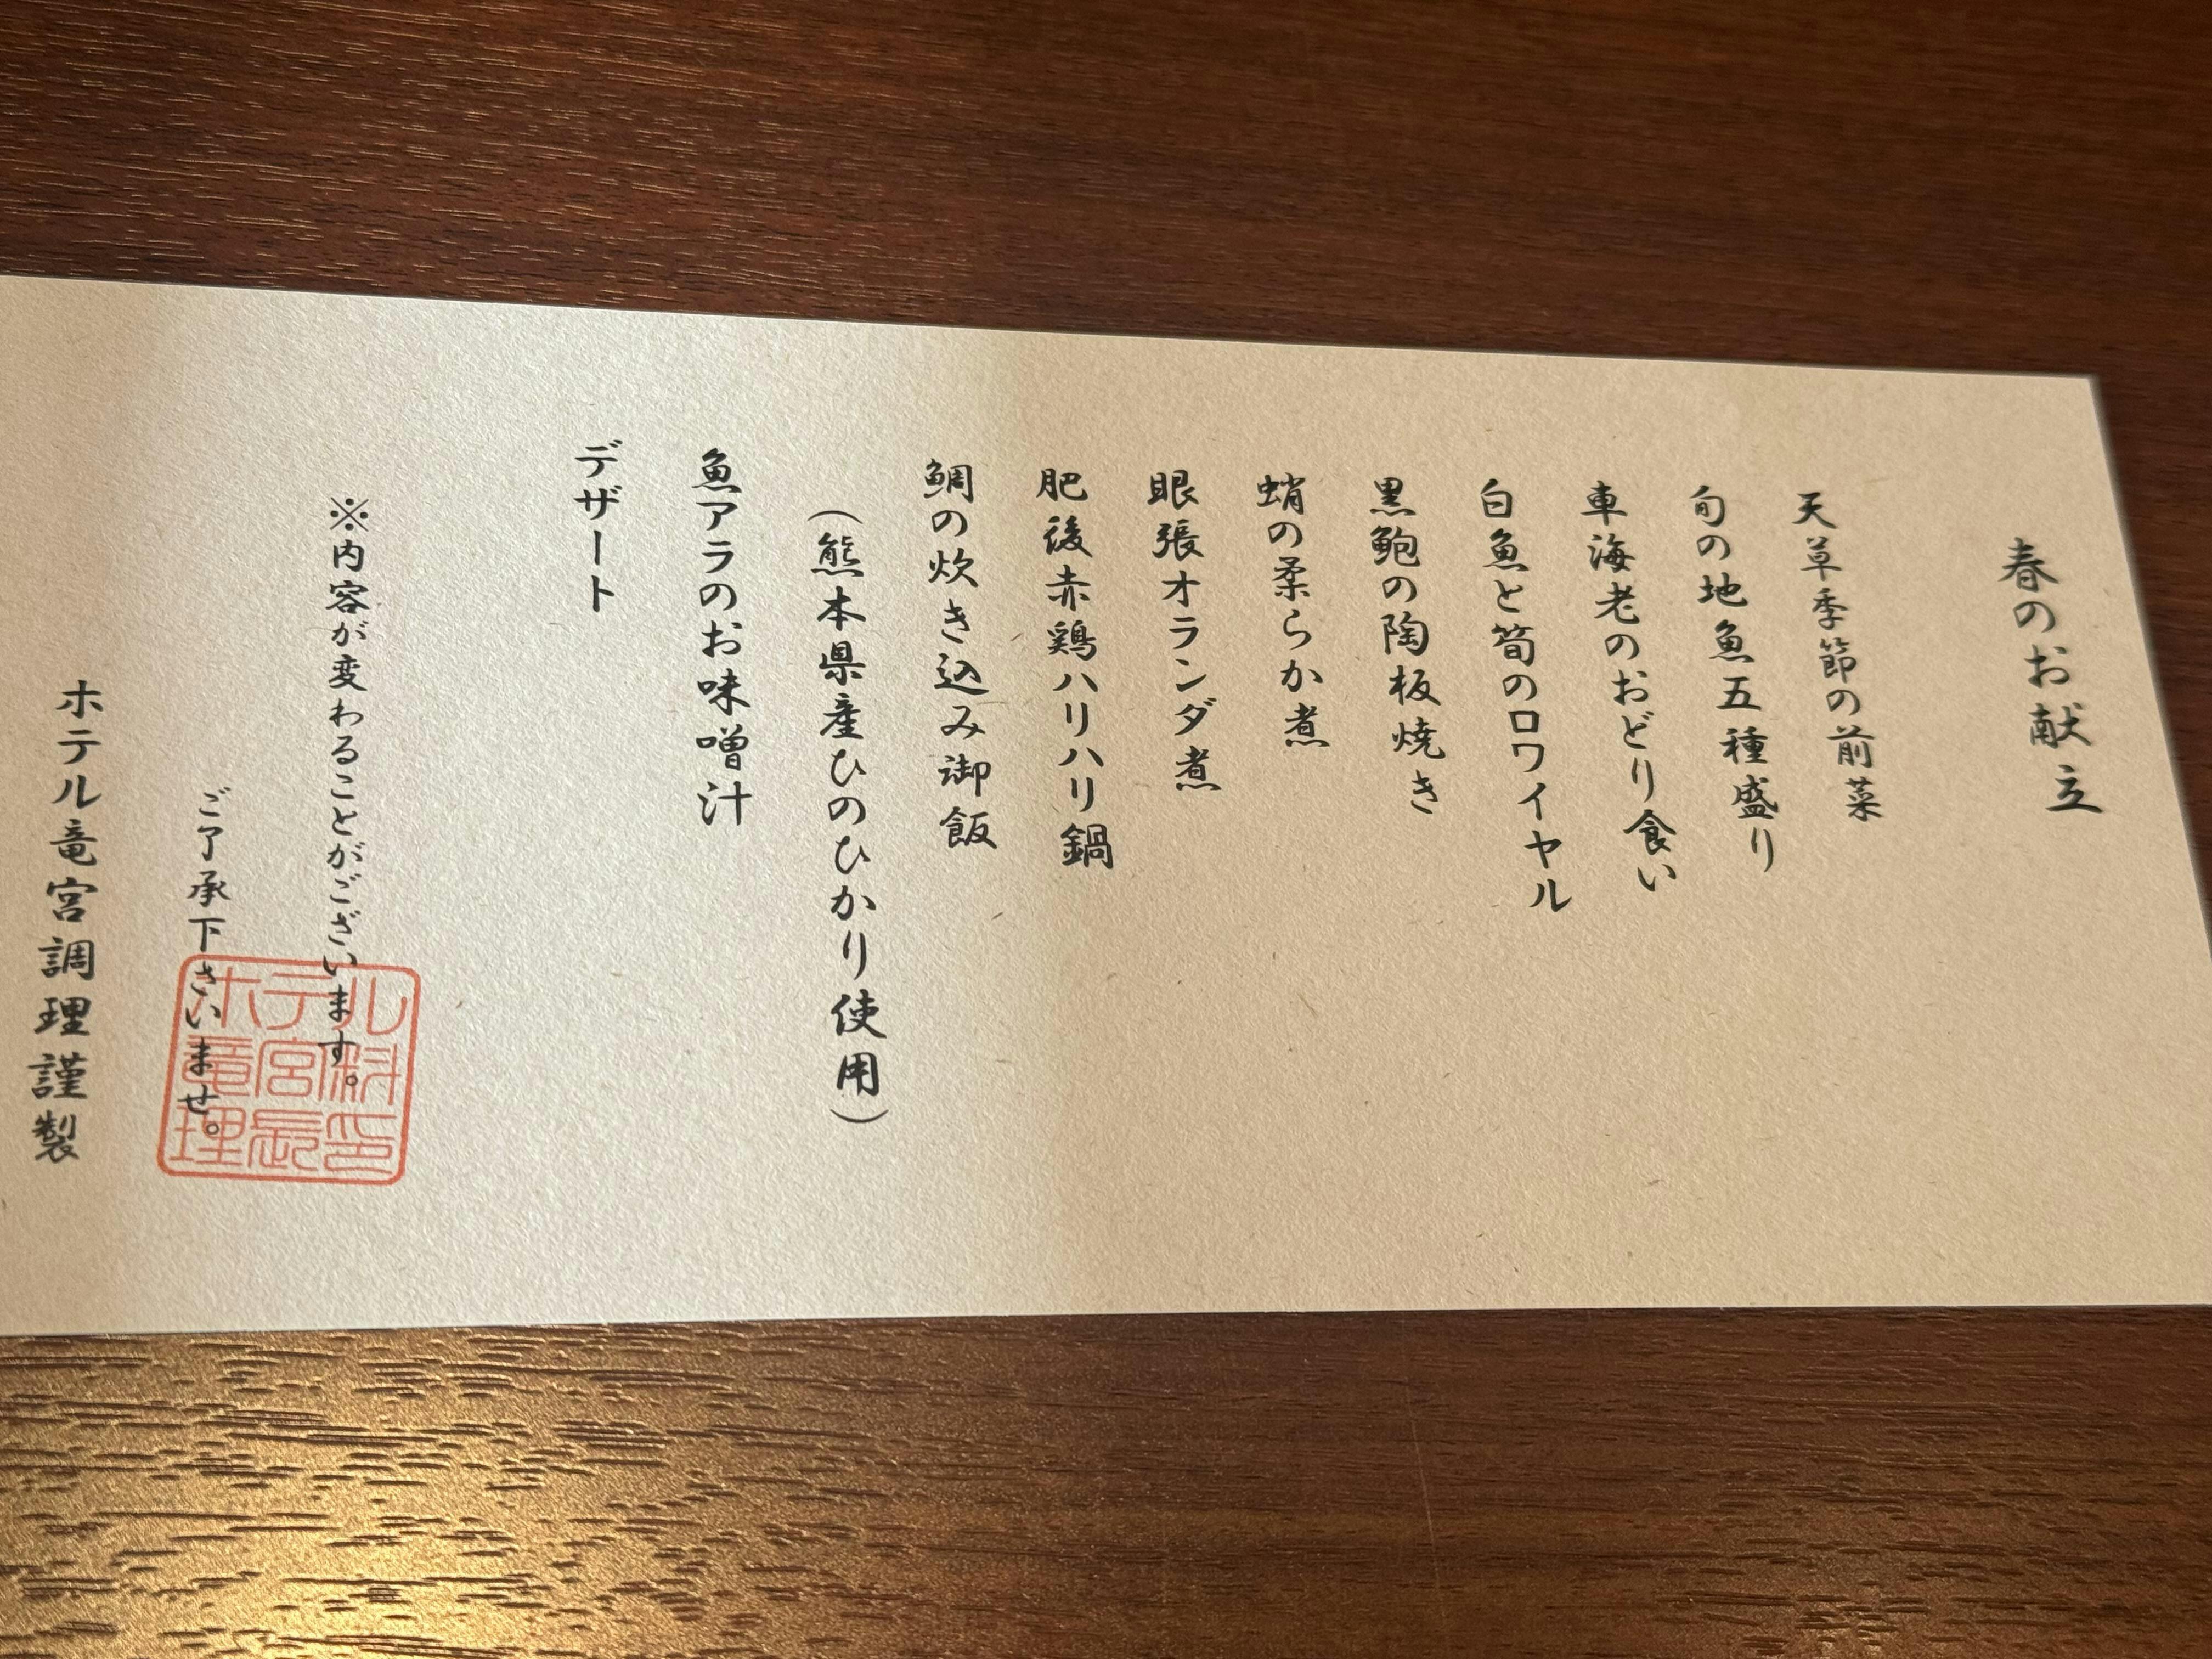 春のお献立
天草季節の前菜
旬の地魚五種盛り
車海老のおどり食い
白魚と筍のロワイヤル
黒鮑の陶板焼き
蛸の柔らか煮
眼張オランダ煮
肥後赤鶏ハリハリ鍋
鯛の炊き込み御飯
（熊本県産ひのひかり使用）
魚アラのお味噌汁
デザート
※内容が変わることがございます。
ご了承下さいませ。
ホテル竜宮調理謹製
ホテル
竜宮料
理長印